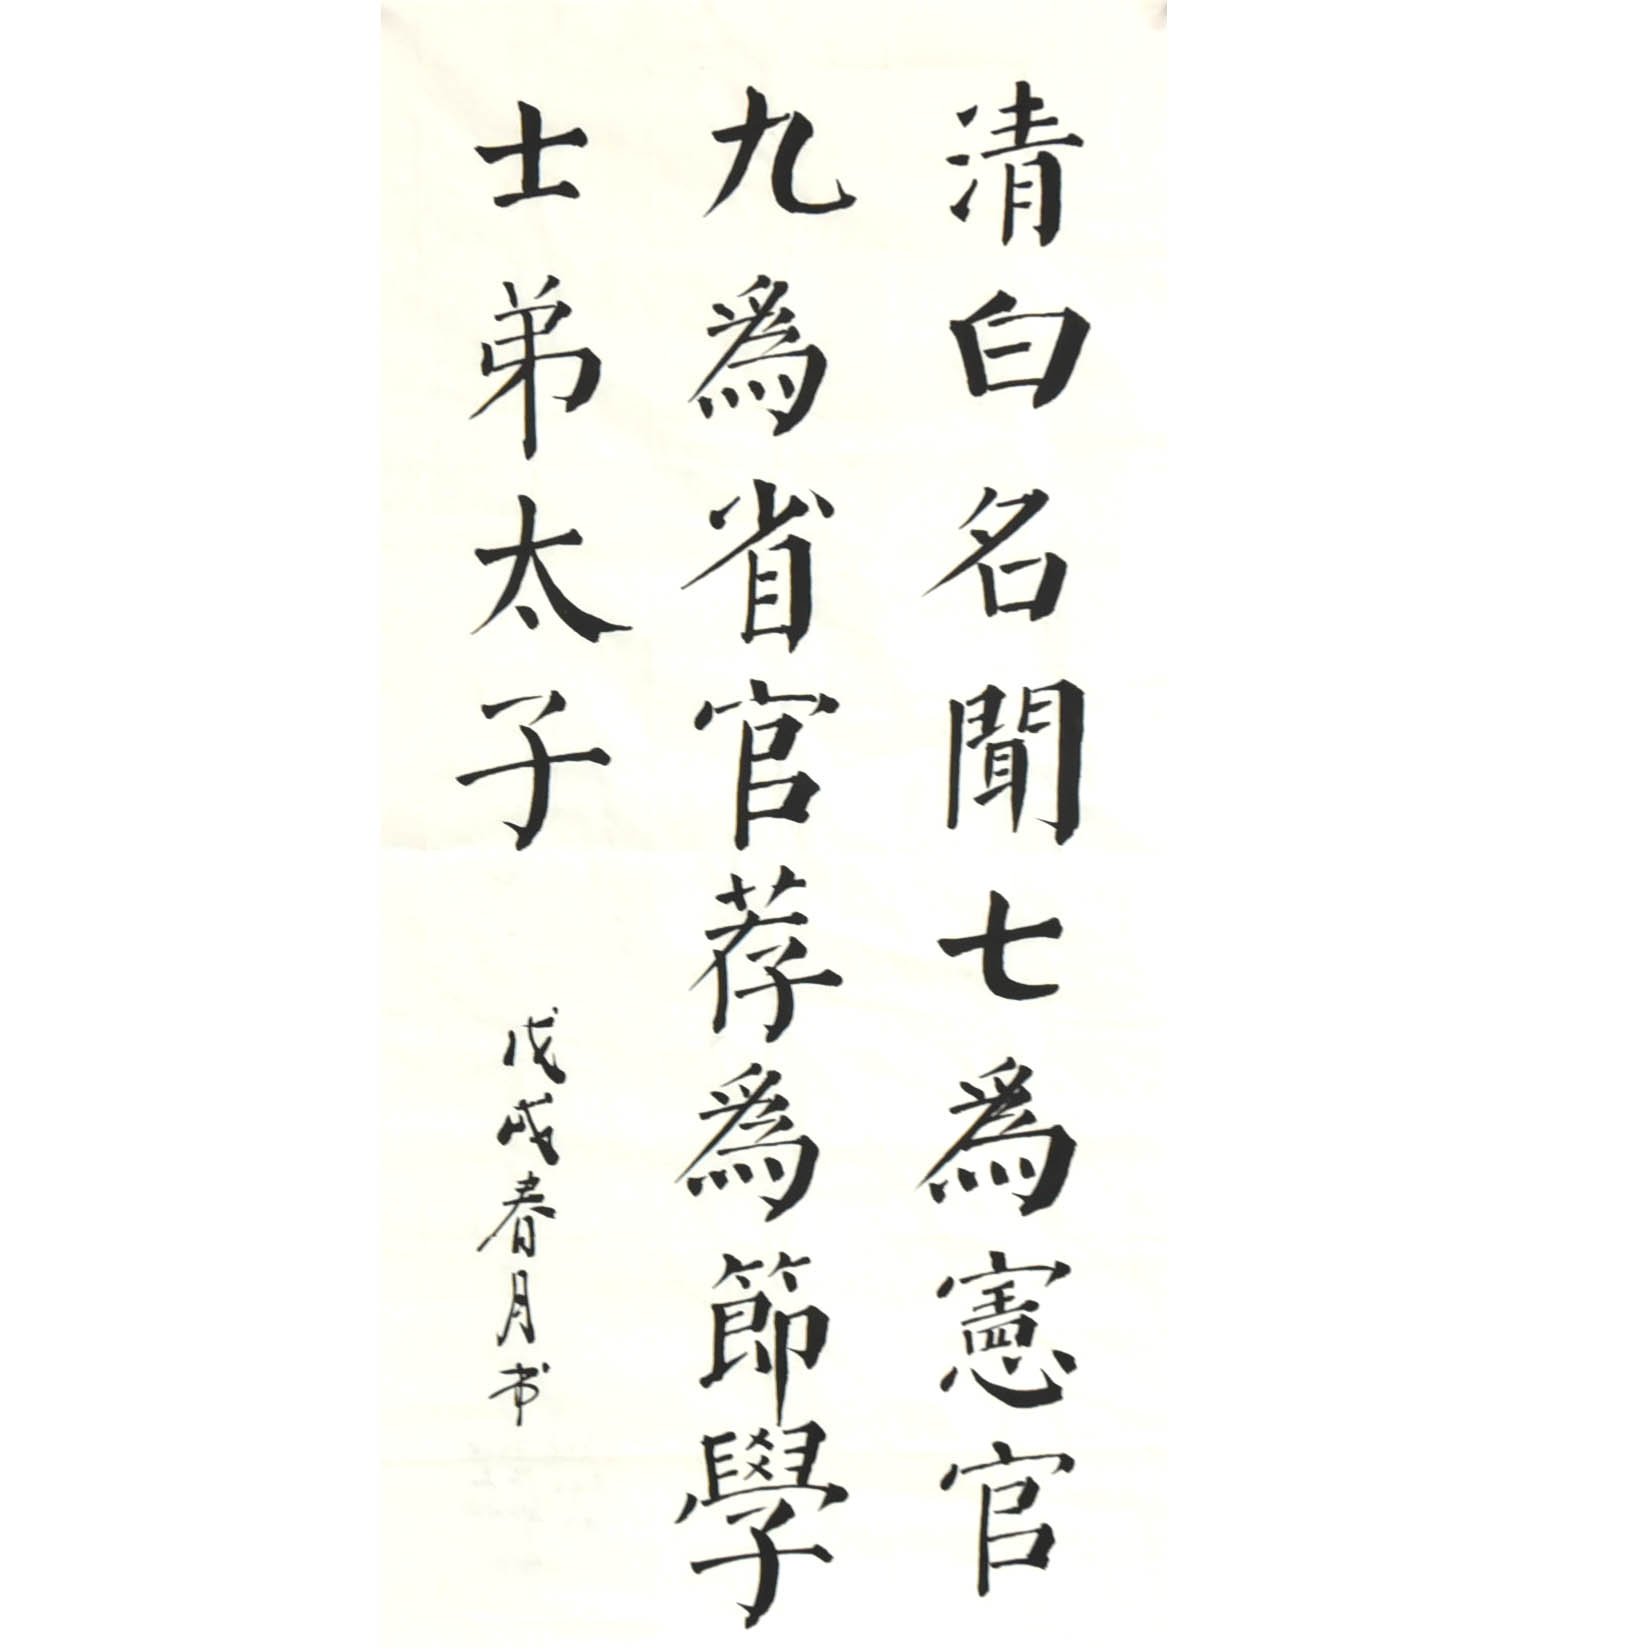 清白名聞七為憲官
九為省官荐為節學
士弟太子
戊戌春月书